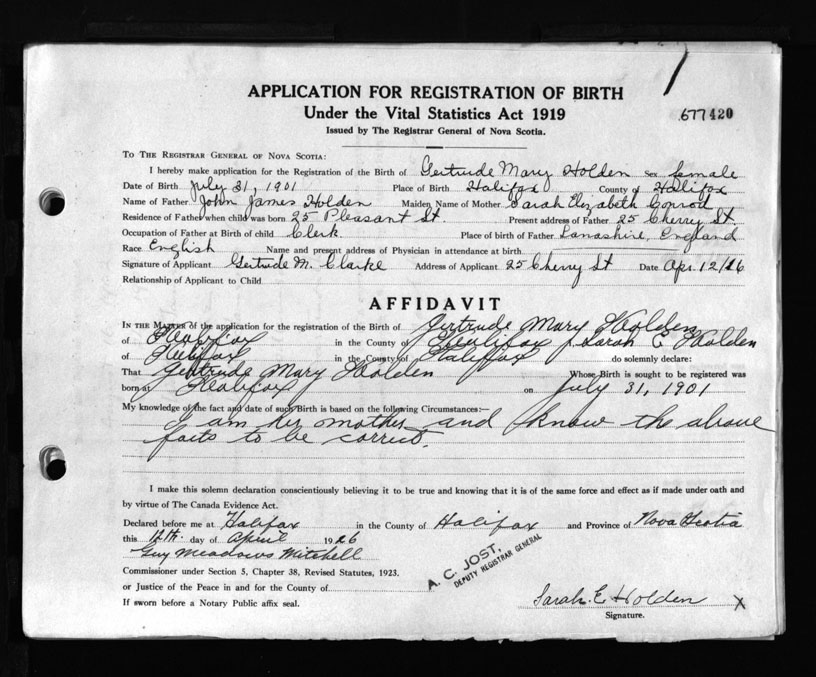 APPLICATION FOR REGISTRATION OF BIRTH
Under the Vital Statistics Act 1919
Issued by The Registrar General of Nova Scotia.
677420
To The Registrar General of Nova Scotia:
I hereby make application for the Registration of the Birth of Gertrude Mary Holden Sex female
Date of Birth July 31, 1901 Place of Birth Halifax County of Halifax
Name of Father John James Holden Maiden Name of Mother Sarah Elizabeth Conrod
Residence of Father when child was born 25 Pleasant St. Present address of Father 25 Cherry St.
Occupation of Father at Birth of child Clerk Place of birth of Father Lanashire, England
Race English Name and present address of Physician in attendance at birth
Signature of Applicant Gertrude M. Clarke Address of Applicant 25 Cherry St Date Apr. 12/26
Relationship of Applicant to Child
AFFIDAVIT
In the Matter of the application for the registration of the Birth of Gertrude Mary Holden
of Halifax in the County of Halifax I Sarah E Holden
of Halifax in the County of Halifax do solemnly declare:
That Gertrude Mary Holden Whose Birth is sought to be registered was
born at Halifax on July 31, 1901
My knowledge of the fact and date of such Birth is based on the following Circumstances:—
I am her mother and know the above
facts to be correct.
I make this solemn declaration conscientiously believing it to be true and knowing that it is of the same force and effect as if made under oath and
by virtue of The Canada Evidence Act.
Declared before me at Halifax in the County of Halifax and Province of Nova Scotia
this 12th. day of April 1926
Guy Meadows Mitchell
Commissioner under Section 5, Chapter 38, Revised Statutes, 1923.
or Justice of the Peace in and for the County of
If sworn before a Notary Public affix seal.
A. C. JOST,
DEPUTY REGISTRAR GENERAL
Sarah. E Holden X
Signature.